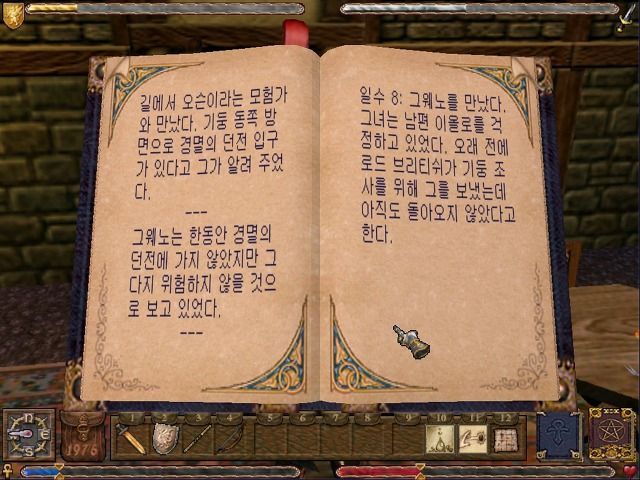 길에서 오슨이라는 모험가
와 만났다. 기둥 동쪽 방
면으로 경멸의 던전 입구
가 있다고 그가 알려 주었
다.
---
그웨노는 한동안 경멸의
던전에 가지 않았지만 그
다지 위험하지 않을 것으
로 보고 있었다.
---
일수 8: 그웨노를 만났다.
그녀는 남편 이올로를 걱
정하고 있었다. 오래 전에
로드 브리티쉬가 기둥 조
사를 위해 그를 보냈는데
아직도 돌아오지 않았다고
한다.
N
E
S
1976
1 2 3 4 5 6 7 8 9 10 11 12